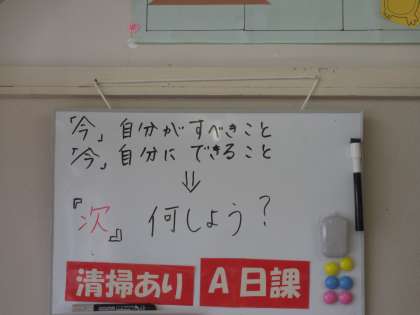 「今」自分がすべきこと
「今」自分にできること
⇓
『次』何しよう？
清掃あり
A日課